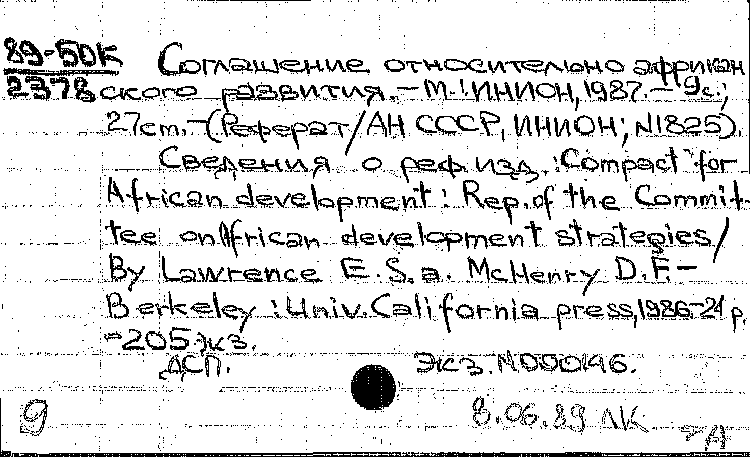 89-50К Соглашение относительно африкан
2378 ского развития.-М.:ИНИОН,1987.-9с.;
27cm.-(Реферат/АН СССР,ИНИОН;N1825).
Сведения о реф.изд.:Compact for
African development: Rep.of the Commit-
tee on African development strategies/
By Lawrence E.S.a. McHenry D.F.-
Berkeley:Univ.California press,1986-21 p.
-205экз.
ДСП. Экз.N000146.
9 8.06.89 ЛК